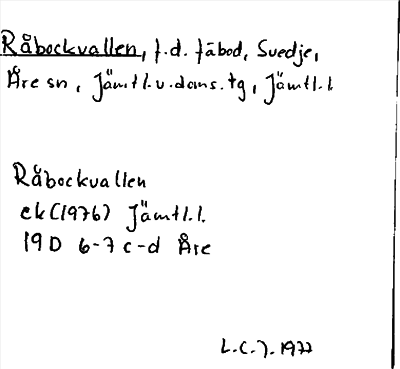 Råbockvallen, f.d. fäbod, Svedje,
Åre sn, Jämtl.v.doms.tg, Jämtl.l.
Råbockvallen
ek (1976) Jämtl.l.
19D 6-7 c-d Åre
L.C.J. 1977